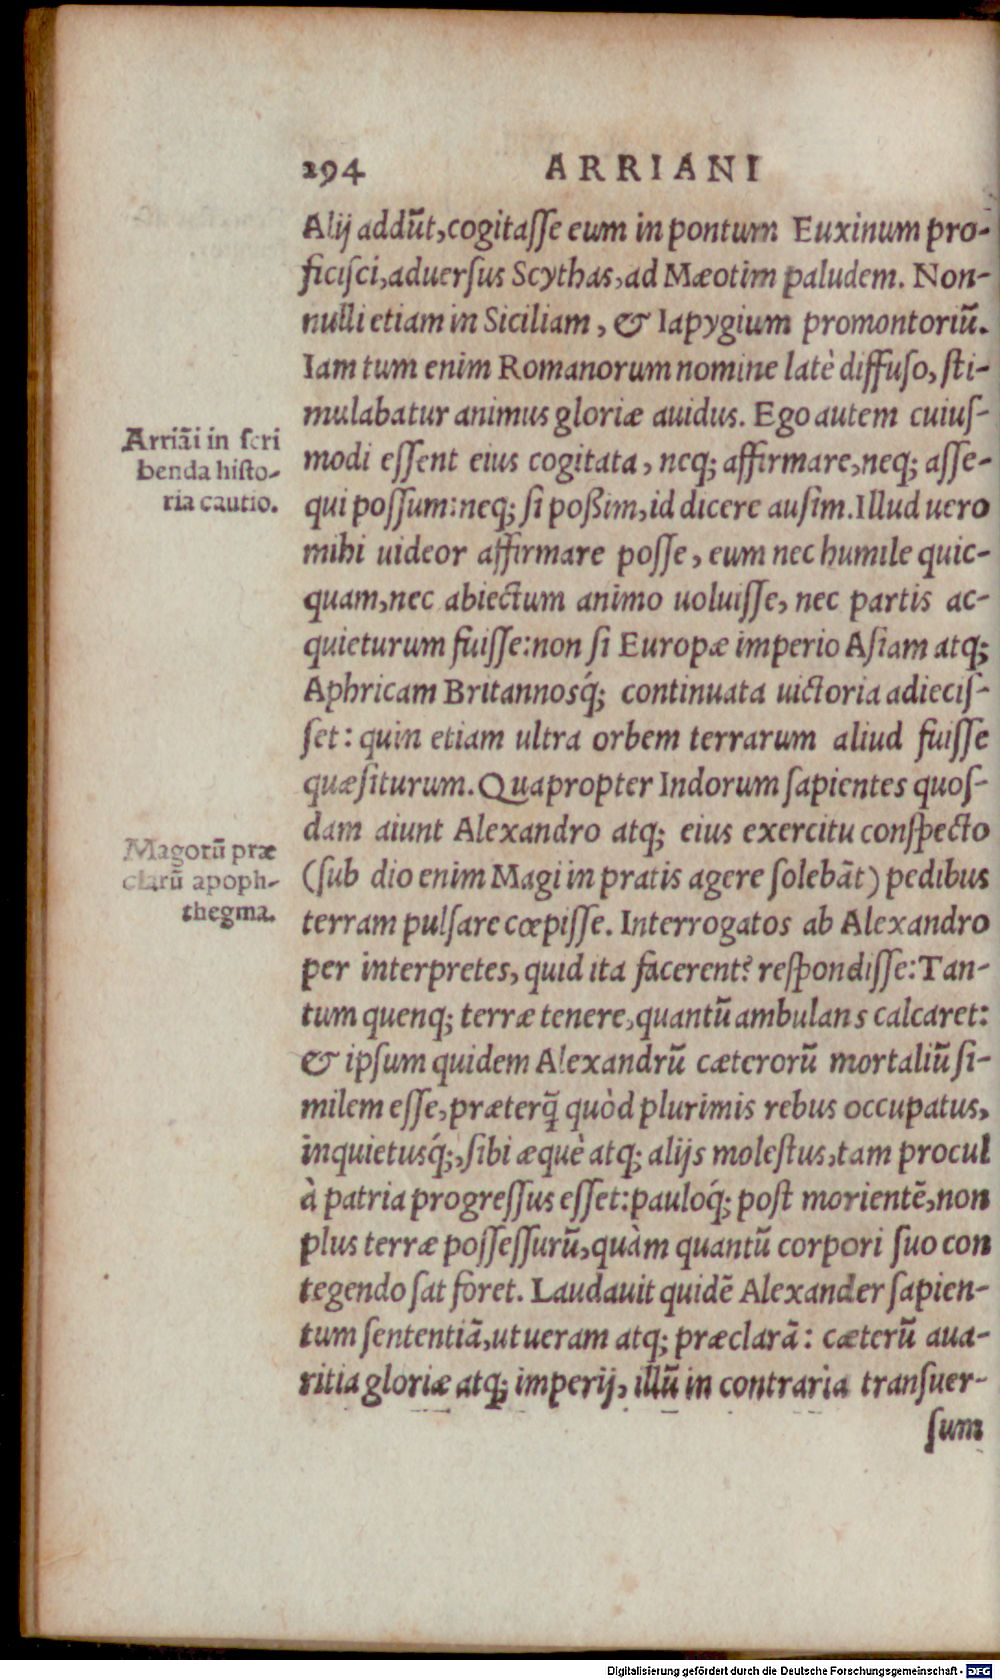 294 ARRIANI
Alij addūt, cogitaſſe eum in pontum Euxinum pro-
ficiſci, aduerſus Scythas, ad Mæotim paludem. Non-
nulli etiam in Siciliam, & Iapygium promontoriū.
Iam tum enim Romanorum nomine latè diffuſo, ſti-
mulabatur animus gloriæ auidus. Ego autem cuiuſ-
Arriāi in ſcri
benda hiſto-
ria cautio.
modi eſſent eius cogitata, neq; affirmare, neq; aſſe-
qui poſſum: neq; ſi poßim, id dicere auſim. Illud uero
mihi uideor affirmare poſſe, eum nec humile quic-
quam, nec abiectum animo uoluiſſe, nec partis ac-
quieturum fuiſſe: non ſi Europæ imperio Aſiam atq;
Aphricam Britannosq́; continuata uictoria adieciſ-
ſet: quin etiam ultra orbem terrarum aliud fuiſſe
quæſiturum. Quapropter Indorum ſapientes quoſ-
dam aiunt Alexandro atq; eius exercitu conſpecto
Magorū præ
clarū apoph-
thegma.
(ſub dio enim Magi in pratis agere ſolebāt) pedibus
terram pulſare cœpiſſe. Interrogatos ab Alexandro
per interpretes, quid ita facerent? reſpondiſſe: Tan-
tum quenq; terræ tenere, quantū ambulans calcaret:
& ipſum quidem Alexandrū cæterorū mortaliū ſi-
milem eſſe, præterq̃ quòd plurimis rebus occupatus,
inquietusq́;, ſibi æquè atq; alijs moleſtus, tam procul
à patria progreſſus eſſet: pauloq́; poſt morientē, non
plus terræ poſſeſſurū, quàm quantū corpori ſuo con
tegendo ſat foret. Laudauit quidē Alexander ſapien-
tum ſententiā, ut ueram atq; præclarā: cæterū aua-
ritia gloriæ atq; imperij, illū in contraria tranſuer-
ſum
Digitalisierung gefördert durch die Deutsche Forschungsgemeinschaft - DFG